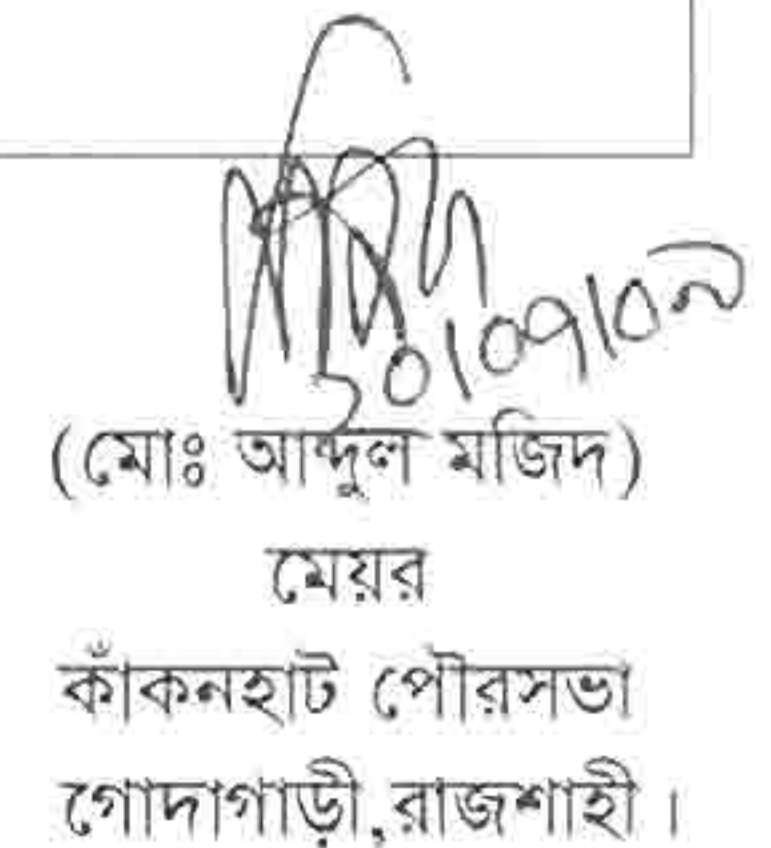 (মোঃ আব্দুল মজিদ)
মেয়র
কাঁকনহাট পৌরসভা
গোদাগাড়ী,রাজশাহী।